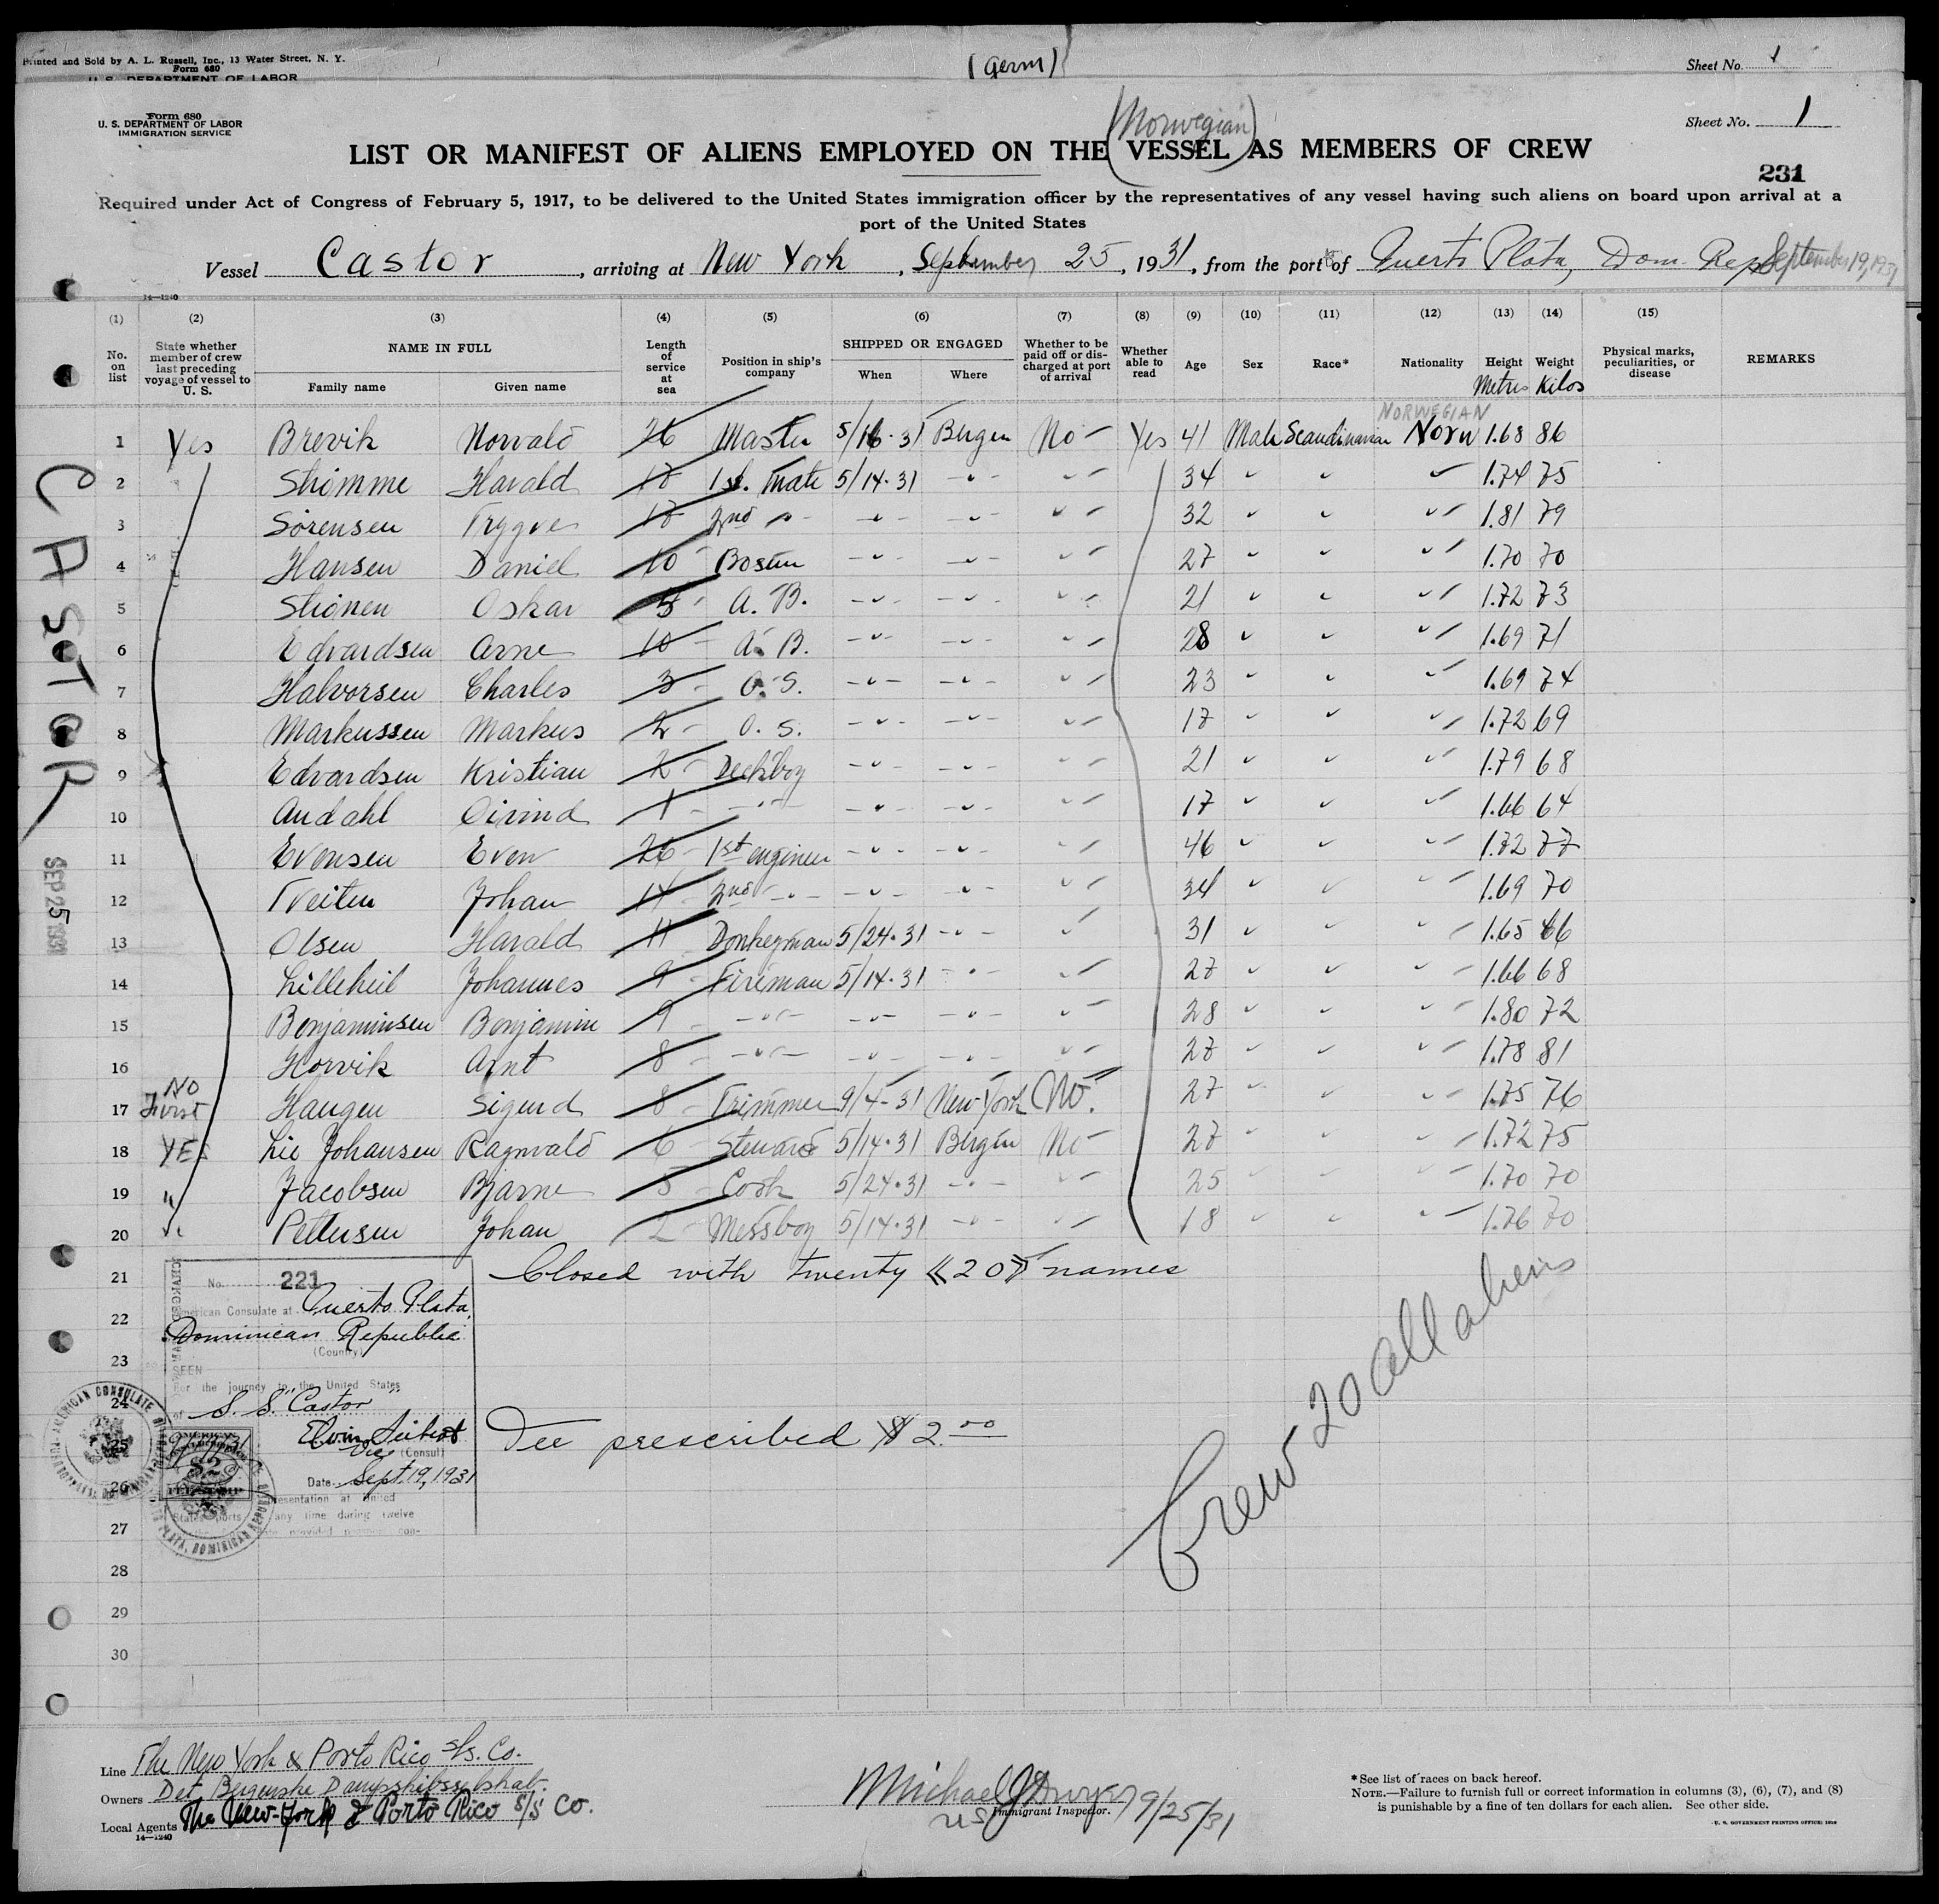 Printed and Sold by A. L. Russell, Inc., 13 Water Street, N. Y.
Form 680
U. S. DEPARTMENT OF LABOR
(Germ)
Sheet No. 1
Form 680
U. S. DEPARTMENT OF LABOR
IMMIGRATION SERVICE
(Norwegian)
Sheet No. 1
LIST OR MANIFEST OF ALIENS EMPLOYED ON THE VESSEL AS MEMBERS OF CREW
231
Required under Act of Congress of February 5, 1917, to be delivered to the United States immigration officer by the representatives of any vessel having such aliens on board upon arrival at a
port of the United States
Vessel Castor, arriving at New York, September 25, 1931, from the port of Puerto Plata, Dom. Rep. September 19, 1931
14—1240
(1) (2) (3) (4) (5) (6) (7) (8) (9) (10) (11) (12) (13) (14) (15)
No. on list
State whether member of crew last preceding voyage of vessel to U. S.
NAME IN FULL
Family name Given name
Length of service at sea
Position in ship's company
SHIPPED OR ENGAGED
When Where
Whether to be paid off or discharged at port of arrival
Whether able to read
Age Sex Race* Nationality
Height Metres
Weight Kilos
Physical marks, peculiarities, or disease
REMARKS
NORWEGIAN
1 Yes Brevik Norvald 26 Master 5/16-31 Bergen No - Yes 41 Male Scandinavian Norw 1.68 86
2 Stromme Harald 18 1st. Mate 5/14-31 -"- " 34 " " " 1.74 75
3 Sørensen Trygve 18 2nd -"- -"- -"- " 32 " " " 1.81 79
4 Hansen Daniel 10 Bosun -"- -"- 27 " " " 1.70 70
5 Stionen Oskar 5 A. B. -"- -"- " 21 " " " 1.72 73
6 Edvardsen Arne 10 A. B. -"- -"- " 28 " " " 1.69 71
7 Halvorsen Charles 3 O. S. -"- -"- " 23 " " " 1.69 74
8 Markussen Markus 2 O. S. -"- -"- " 17 " " " 1.72 69
9 Edvardsen Kristian 2 Deckboy -"- -"- " 21 " " " 1.79 68
10 Audahl Oivind 1 -"- -"- -"- " 17 " " " 1.66 64
11 Evensen Even 26 1st engineer -"- -"- " 46 " " " 1.72 77
12 Tveiten Johan 14 2nd -"- -"- -"- " 34 " " " 1.69 70
13 Olsen Harald 11 Donkeyman 5/24-31 -"- " 31 " " " 1.65 66
14 Lilleheil Johannes 9 Fireman 5/14-31 -"- " 27 " " " 1.66 68
15 Benjaminsen Benjamin 9 -"- -"- -"- " 28 " " " 1.80 72
16 Horvik Arnt 8 -"- -"- -"- " 27 " " " 1.78 81
17 No First Haugen Sigurd 8 Trimmer 9/4-31 New-York No. 27 " " " 1.75 76
18 YES Lie Johansen Ragnvald 6 Steward 5/14-31 Bergen No 27 " " " 1.72 75
19 " Jacobsen Bjarne 5 Cook 5/24-31 -"- " 25 " " " 1.70 70
20 " Pettersen Johan 2 Messboy 5/14-31 -"- " 18 " " " 1.76 70
CASTOR
SEP 25 1931
21 Closed with twenty «20» names
22
23
24
25
26
27
28
29
30
No. 221
American Consulate at Puerto Plata,
Dominican Republic
(Country)
SEEN
For the journey to the United States
of S. S. "Castor"
Vice (Consul)
Date Sept. 19, 1931
presentation at United
States ports any time during twelve
provided
AMERICAN CONSULATE
PUERTO PLATA, DOMINICAN REPUBLIC
$2
Fee prescribed $2.00
Crew 20 all aliens
Line The New York & Porto Rico S/s. Co.
Owners Det Bergenske Dampskibsselskab.
Local Agents The New-York & Porto Rico S/S Co.
14—1240
Michael J Dwyer 9/25/31
US Immigrant Inspector.
*See list of races on back hereof.
NOTE.—Failure to furnish full or correct information in columns (3), (6), (7), and (8)
is punishable by a fine of ten dollars for each alien. See other side.
U. S. GOVERNMENT PRINTING OFFICE: 1930